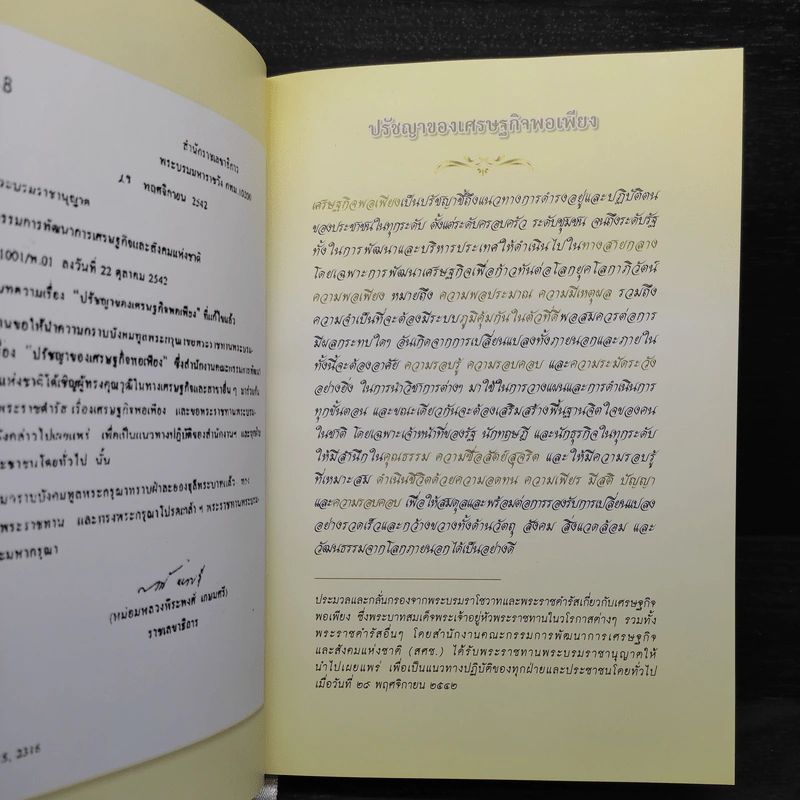 8
สำนักราชเลขาธิการ
พระบรมมหาราชวัง กทม. 10200
๒๙ พฤศจิกายน 2542
ระบรมราชานุญาต
รรมการพัฒนาการเศรษฐกิจและสังคมแห่งชาติ
1001/พ.01 ลงวันที่ 22 ตุลาคม 2542
บทความเรื่อง “ปรัชญาของเศรษฐกิจพอเพียง” ที่แก้ไขแล้ว
านขอให้นำความกราบบังคมทูลพระกรุณาขอพระราชทานพระบรม-
รื่อง “ปรัชญาของเศรษฐกิจพอเพียง” ซึ่งสำนักงานคณะกรรมการพัฒนา
แห่งชาติได้เชิญผู้ทรงคุณวุฒิในทางเศรษฐกิจและสาขาอื่นๆ มาร่วมกัน
พระราชดำรัส เรื่องเศรษฐกิจพอเพียง และขอพระราชทานพระบรม-
ดังกล่าวไปเผยแพร่ เพื่อเป็นแนวทางปฏิบัติของสำนักงานฯ และทุกฝ่าย
ะชาชนโดยทั่วไป นั้น
นำกราบบังคมทูลพระกรุณาทราบฝ่าละอองธุลีพระบาทแล้ว ทรง
พระราชทาน และทรงพระกรุณาโปรดเกล้าฯ พระราชทานพระบรม-
ะมหากรุณา
(หม่อมหลวงพีระพงศ์ เกษมศรี)
ราชเลขาธิการ
5, 2316
ปรัชญาของเศรษฐกิจพอเพียง
เศรษฐกิจพอเพียงเป็นปรัชญาชี้ถึงแนวทางการดำรงอยู่และปฏิบัติตน
ของประชาชนในทุกระดับ ตั้งแต่ระดับครอบครัว ระดับชุมชน จนถึงระดับรัฐ
ทั้งในการพัฒนาและบริหารประเทศให้ดำเนินไปในทางสายกลาง
โดยเฉพาะการพัฒนาเศรษฐกิจเพื่อก้าวทันต่อโลกยุคโลกาภิวัตน์
ความพอเพียง หมายถึง ความพอประมาณ ความมีเหตุผล รวมถึง
ความจำเป็นที่จะต้องมีระบบภูมิคุ้มกันในตัวที่ดีพอสมควรต่อการ
มีผลกระทบใดๆ อันเกิดจากการเปลี่ยนแปลงทั้งภายนอกและภายใน
ทั้งนี้จะต้องอาศัย ความรอบรู้ ความรอบคอบ และความระมัดระวัง
อย่างยิ่ง ในการนำวิชาการต่างๆ มาใช้ในการวางแผนและการดำเนินการ
ทุกขั้นตอน และขณะเดียวกันจะต้องเสริมสร้างพื้นฐานจิตใจของคน
ในชาติ โดยเฉพาะเจ้าหน้าที่ของรัฐ นักทฤษฎี และนักธุรกิจในทุกระดับ
ให้มีสำนึกในคุณธรรม ความซื่อสัตย์สุจริต และให้มีความรอบรู้
ที่เหมาะสม ดำเนินชีวิตด้วยความอดทน ความเพียร มีสติ ปัญญา
และความรอบคอบ เพื่อให้สมดุลและพร้อมต่อการรองรับการเปลี่ยนแปลง
อย่างรวดเร็วและกว้างขวางทั้งด้านวัตถุ สังคม สิ่งแวดล้อม และ
วัฒนธรรมจากโลกภายนอกได้เป็นอย่างดี
ประมวลและกลั่นกรองจากพระบรมราโชวาทและพระราชดำรัสเกี่ยวกับเศรษฐกิจ
พอเพียง ซึ่งพระบาทสมเด็จพระเจ้าอยู่หัวพระราชทานในวโรกาสต่างๆ รวมทั้ง
พระราชดำรัสอื่นๆ โดยสำนักงานคณะกรรมการพัฒนาการเศรษฐกิจ
และสังคมแห่งชาติ (สศช.) ได้รับพระราชทานพระบรมราชานุญาตให้
นำไปเผยแพร่ เพื่อเป็นแนวทางปฏิบัติของทุกฝ่ายและประชาชนโดยทั่วไป
เมื่อวันที่ ๒๙ พฤศจิกายน ๒๕๔๒